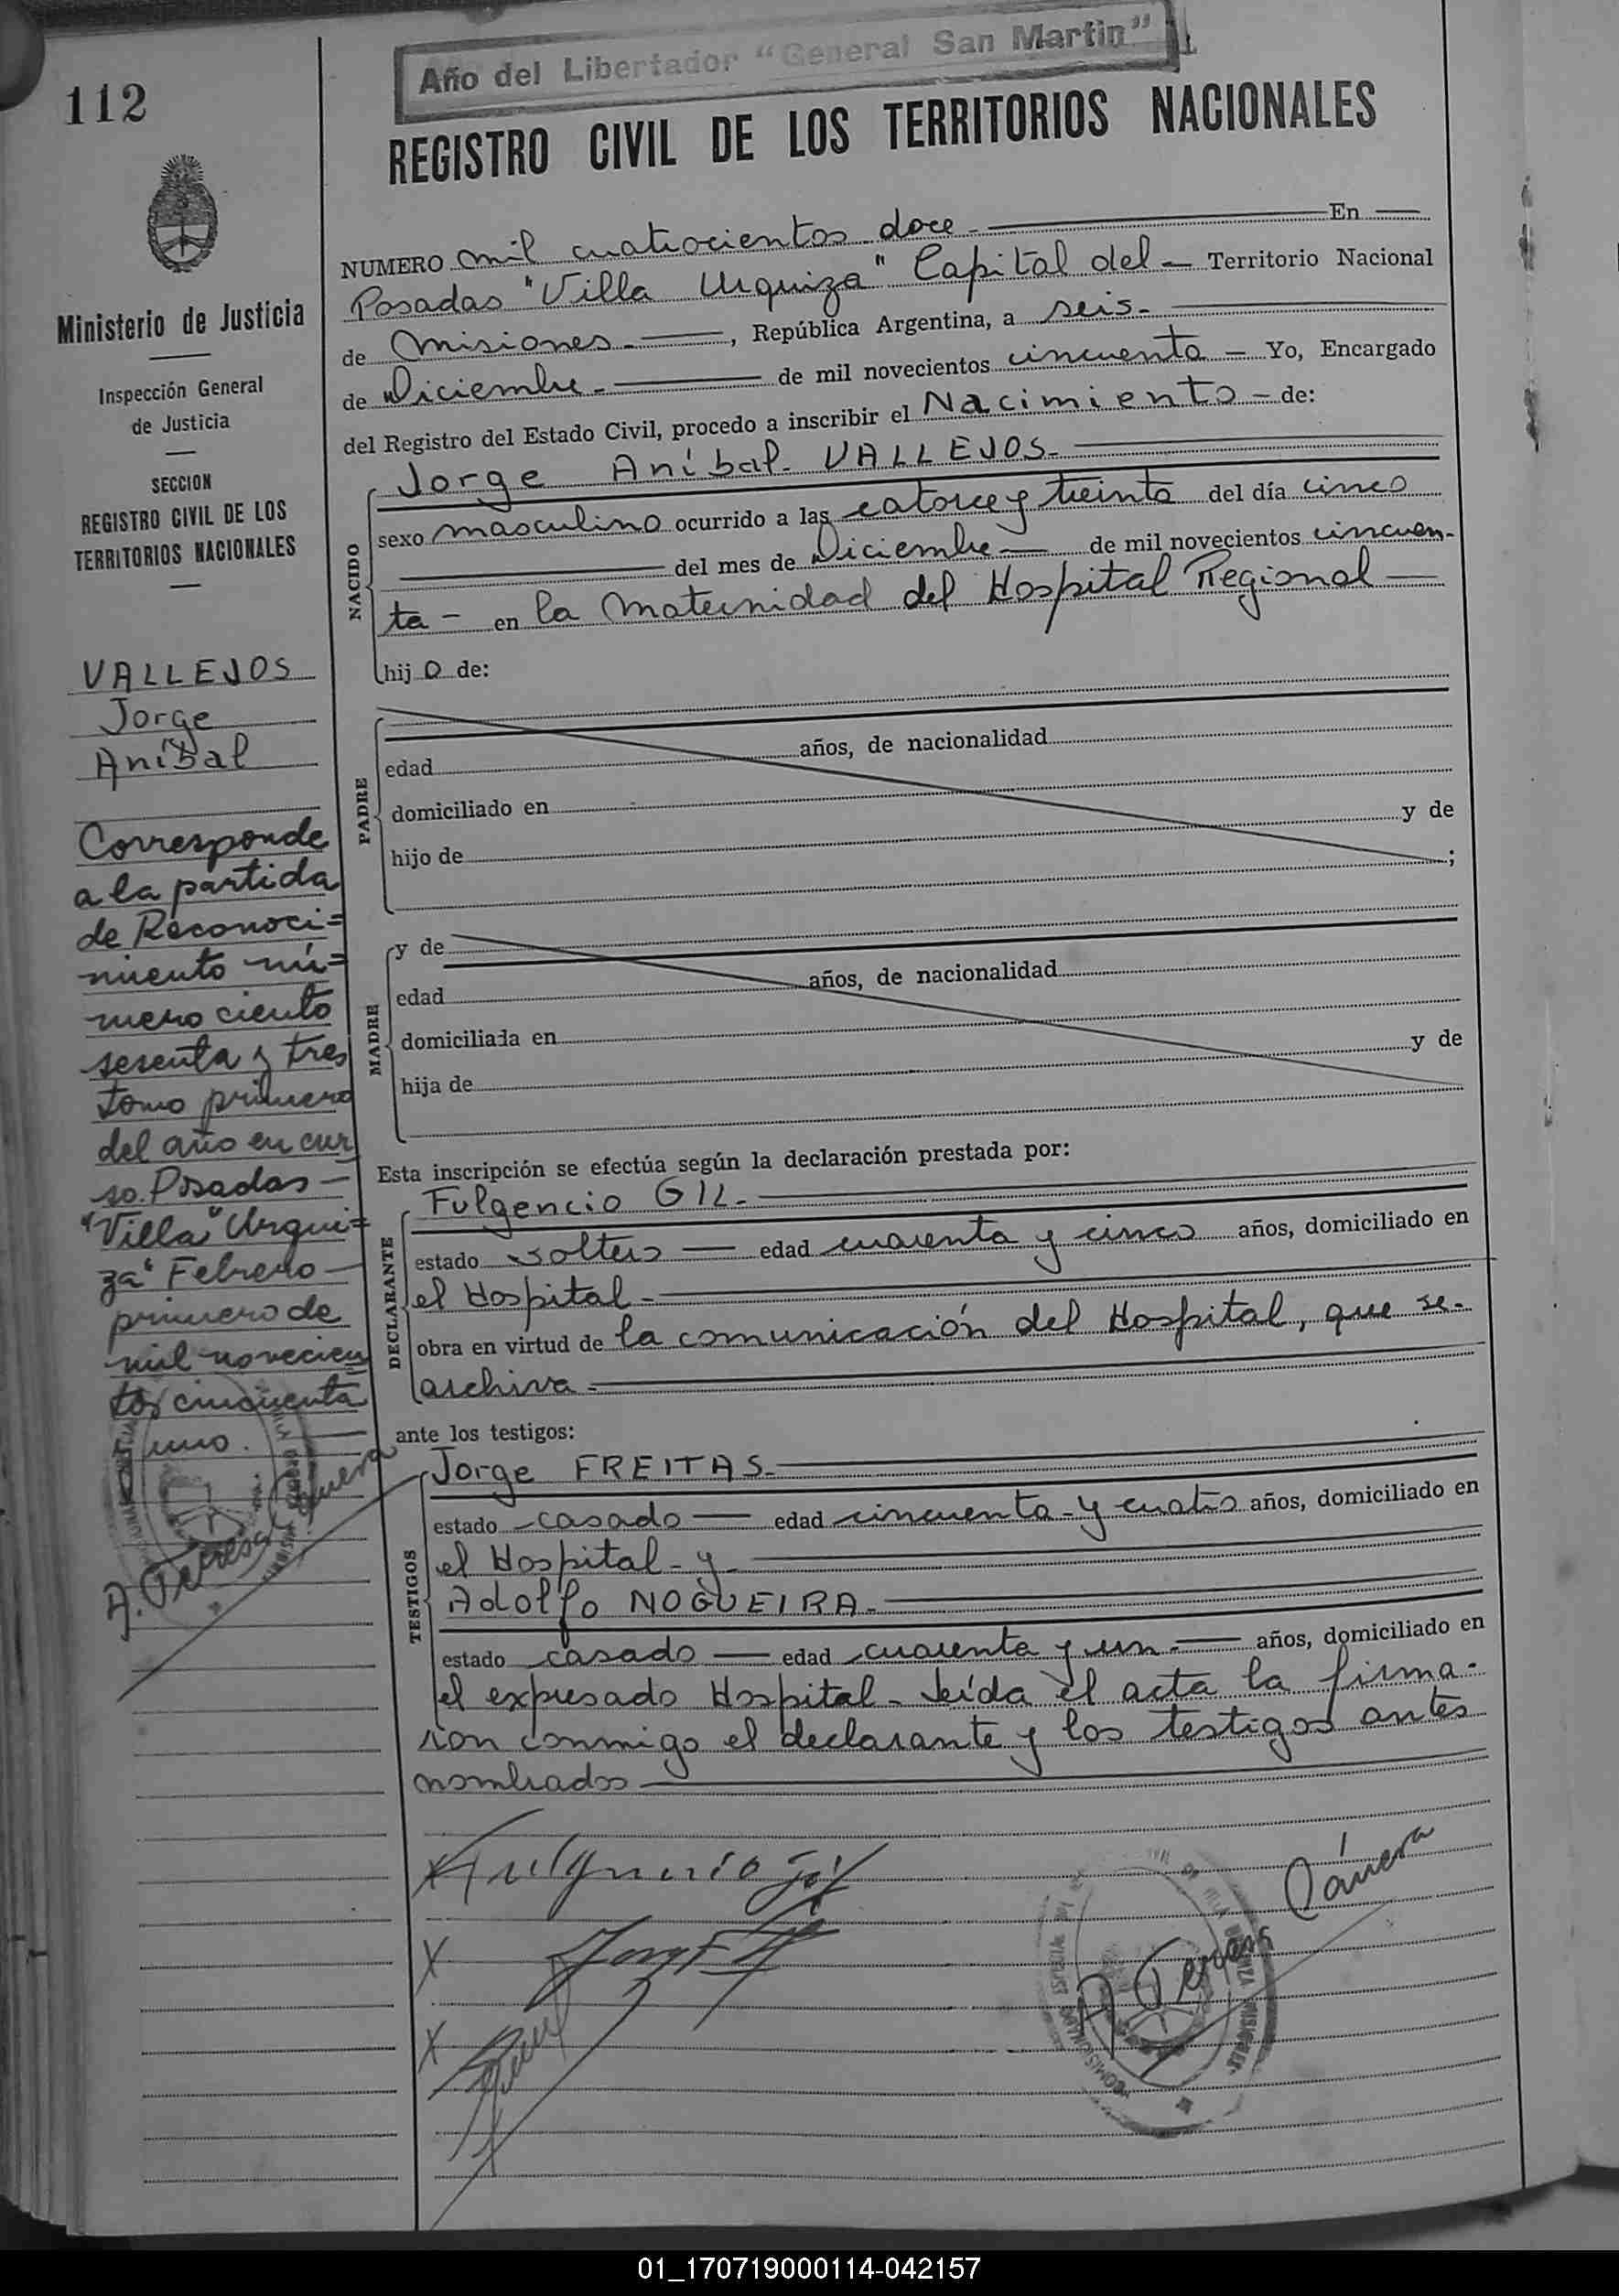 Año del Libertador "General San Martin"
112
REGISTRO CIVIL DE LOS TERRITORIOS NACIONALES
Ministerio de Justicia
Inspección General
de Justicia
SECCION
REGISTRO CIVIL DE LOS
TERRITORIOS NACIONALES
VALLEJOS
Jorge
Aníbal
Corresponde
a la partida
de Reconoci=
miento nú=
mero ciento
sesenta y tres
tomo primero
del año en cur
so. Posadas -
"Villa" Urqui=
za" Febrero -
primero de
mil novecien
tos cincuenta
y uno.
A. Teresa Cámera
NUMERO mil cuatrocientos doce - En
Posadas "Villa Urquiza" Capital del - Territorio Nacional
de Misiones. - , República Argentina, a seis. -
de Diciembre. - de mil novecientos cincuenta - Yo, Encargado
del Registro del Estado Civil, procedo a inscribir el Nacimiento - de:
NACIDO
Jorge Aníbal VALLEJOS. -
sexo masculino ocurrido a las catorce y treinta del día cinco
del mes de Diciembre - de mil novecientos cincuen-
ta - en la Maternidad del Hospital Regional -
hijo de:
PADRE
edad años, de nacionalidad
domiciliado en
hijo de y de
;
MADRE
y de
edad años, de nacionalidad
domiciliada en
hija de y de
Esta inscripción se efectúa según la declaración prestada por:
DECLARANTE
Fulgencio GIL. -
estado soltero - edad cuarenta y cinco años, domiciliado en
el Hospital -
obra en virtud de la comunicación del Hospital, que se.
archiva -
ante los testigos:
TESTIGOS
Jorge FREITAS. -
estado casado - edad cincuenta y cuatro años, domiciliado en
el Hospital - y
Adolfo NOGUEIRA. -
estado casado - edad cuarenta y un. - años, domiciliado en
el expresado Hospital - Leída el acta la firma-
ron conmigo el declarante y los testigos antes
nombrados
X Fulgencio Gil
X
X
A Teresa Cámera
01_170719000114-042157